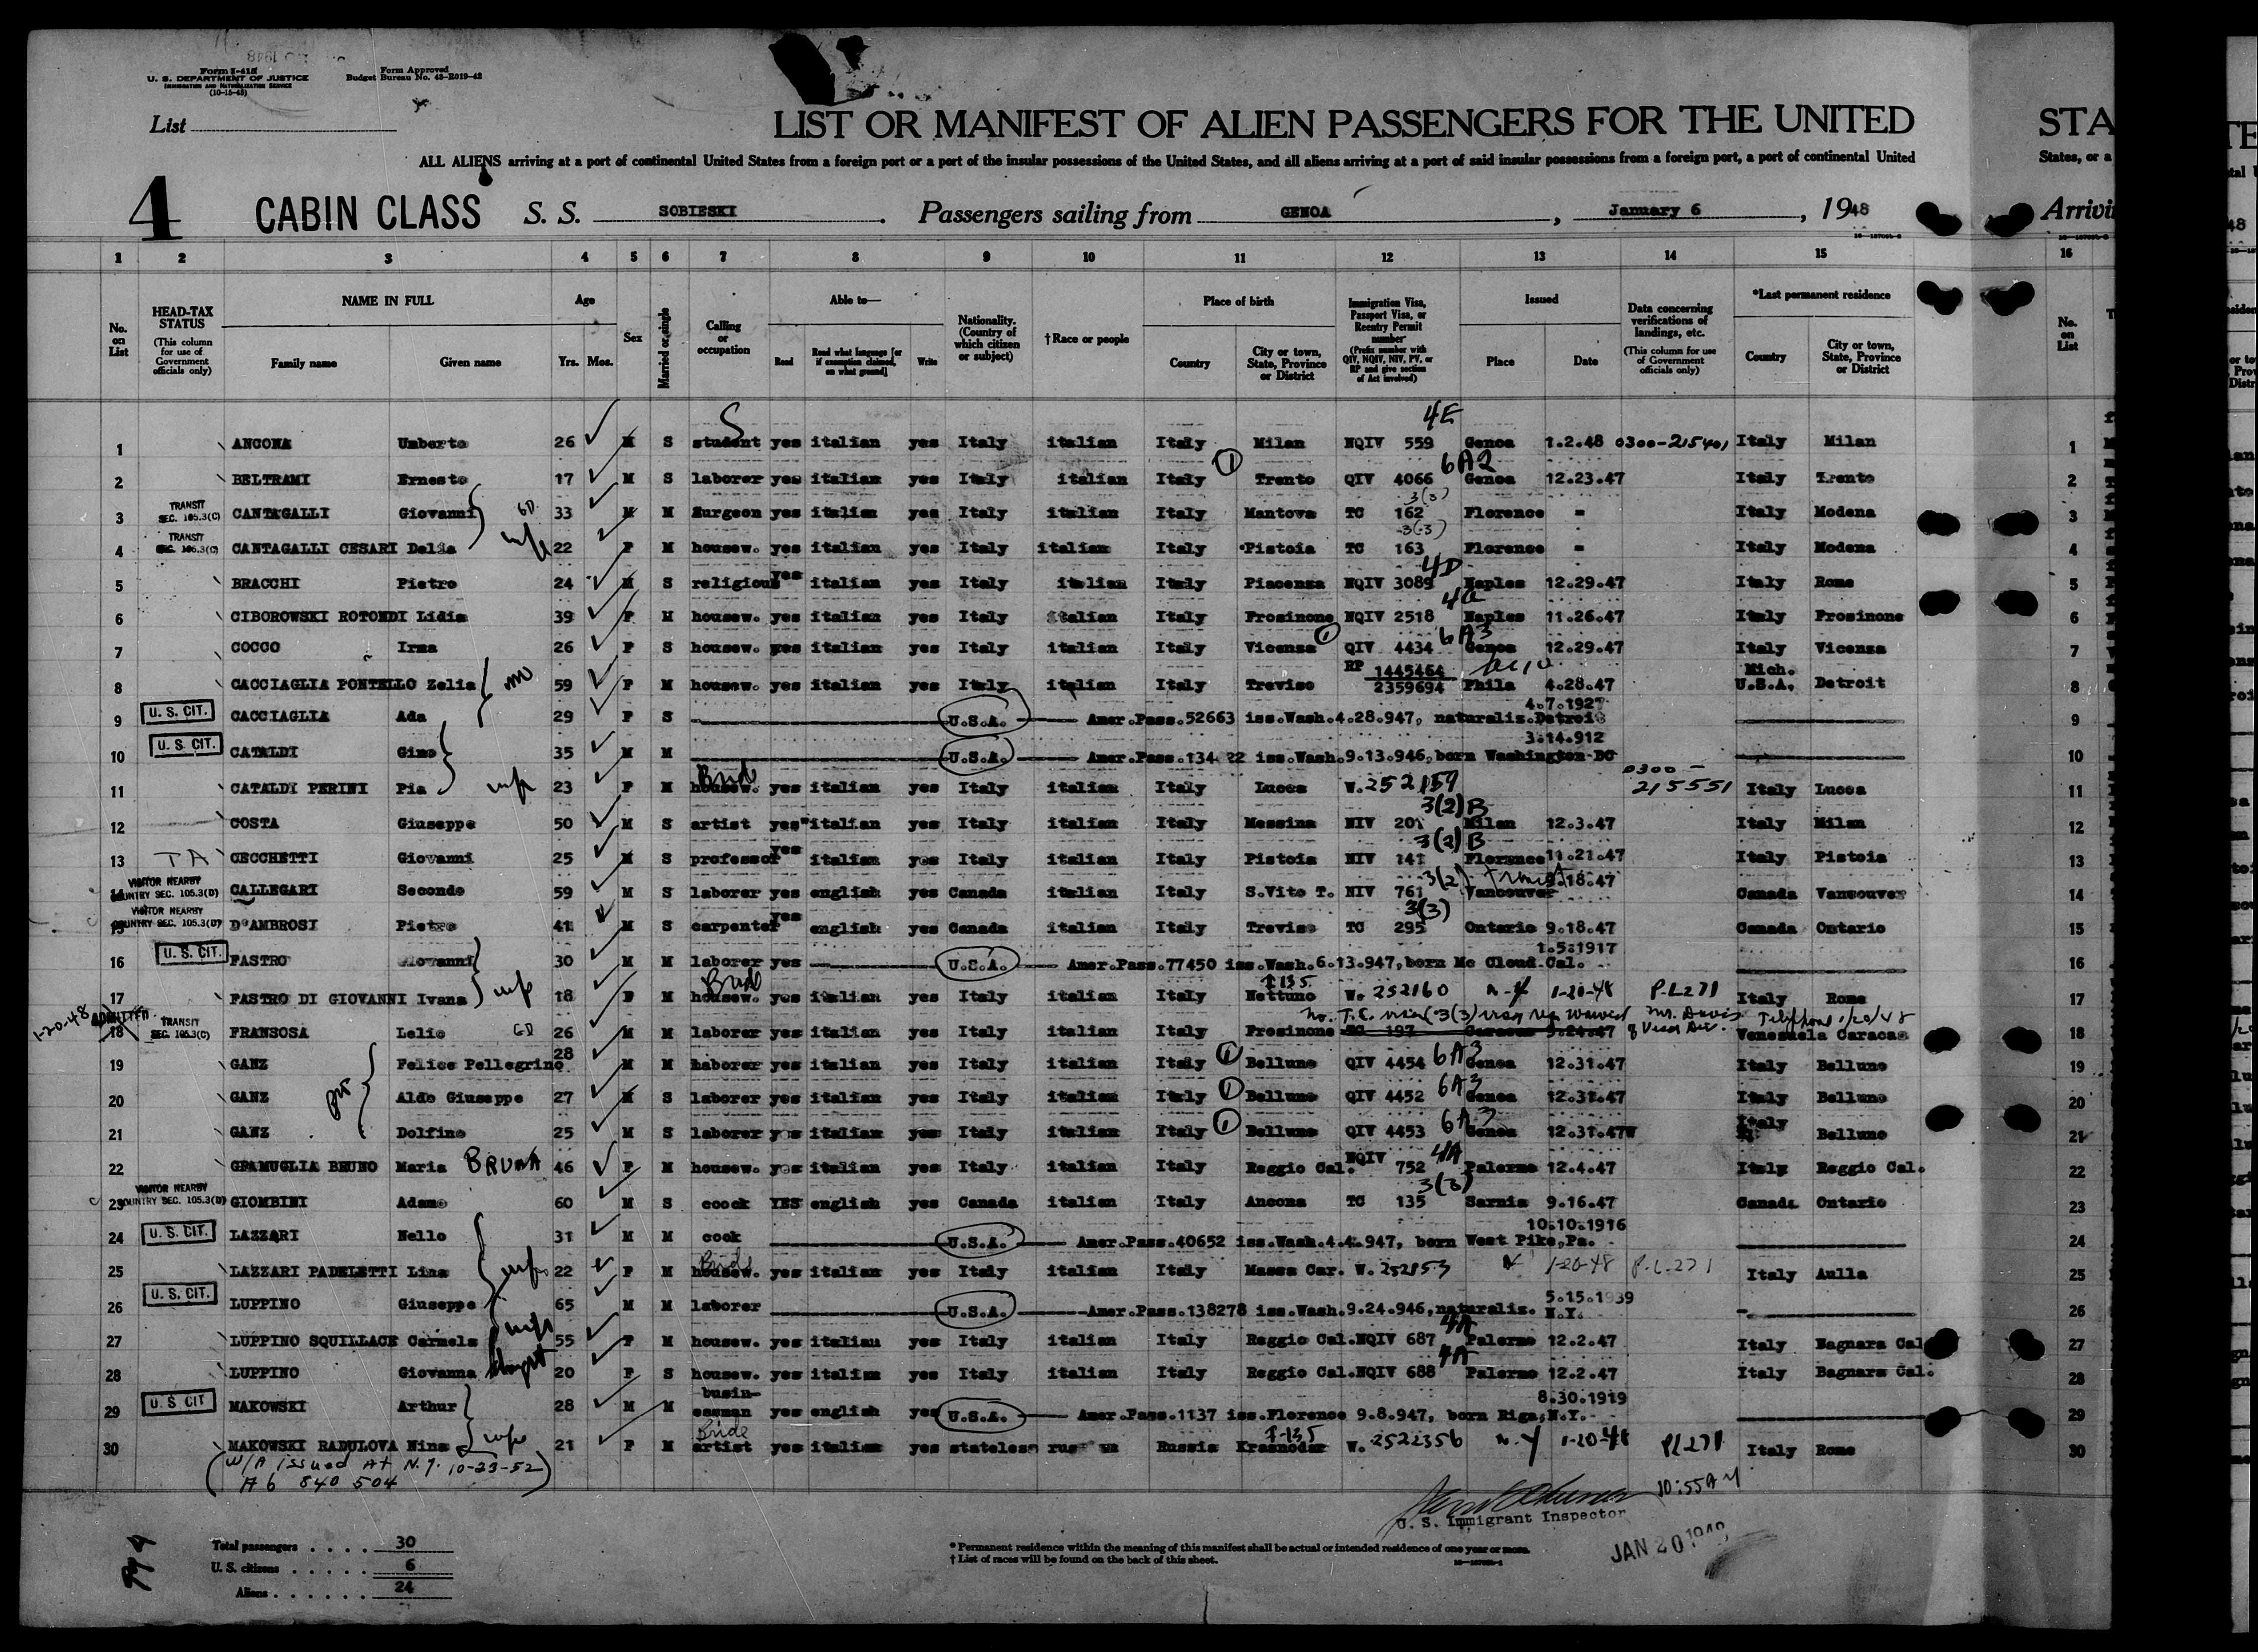 Form I-415
U. S. DEPARTMENT OF JUSTICE
IMMIGRATION AND NATURALIZATION SERVICE
(10-15-45)
Form Approved
Budget Bureau No. 43-R019-42
List
LIST OR MANIFEST OF ALIEN PASSENGERS FOR THE UNITED
STA
ALL ALIENS arriving at a port of continental United States from a foreign port or a port of the insular possessions of the United States, and all aliens arriving at a port of said insular possessions from a foreign port, a port of continental United
States, or a
4 CABIN CLASS S. S. SOBIESKI . Passengers sailing from GENOA , January 6 , 1948
1 2 3 4 5 6 7 8 9 10 11 12 13 14 15 16
No. on List
HEAD-TAX STATUS (This column for use of Government officials only)
NAME IN FULL Family name Given name
Age Yrs. Mos.
Sex
Married or single
Calling or occupation
Able to— Read Read what language [or if exemption claimed, on what ground] Write
Nationality. (Country of which citizen or subject)
†Race or people
Place of birth Country City or town, State, Province or District
Immigration Visa, Passport Visa, or Reentry Permit number (Prefix number with QIV, NQIV, NIV, PV, or RP and give section of Act involved)
Issued Place Date
Data concerning verifications of landings, etc. (This column for use of Government officials only)
*Last permanent residence Country City or town, State, Province or District
No. on List
S 4E
1 ANCONA Umberto 26 M S student yes italian yes Italy italian Italy Milan NQIV 559 Genoa 1.2.48 0300-215401 Italy Milan 1
6A2
2 BELTRAMI Ernesto 17 M S laborer yes italian yes Italy italian Italy Trento QIV 4066 Genoa 12.23.47 Italy Trento 2
3(3)
3 TRANSIT SEC. 105.3(C) CANTAGALLI Giovanni GD 33 M M Surgeon yes italian yes Italy italian Italy Mantova TC 162 Florence - Italy Modena 3
3(3)
4 TRANSIT SEC. 105.3(C) CANTAGALLI CESARI Delia wife 22 F M housew. yes italian yes Italy italian Italy Pistoia TC 163 Florence - Italy Modena 4
4D
5 BRACCHI Pietro 24 M S religious yes italian yes Italy italian Italy Piacenza NQIV 3089 Naples 12.29.47 Italy Rome 5
6 CIBOROWSKI ROTONDI Lidia 39 F M housew. yes italian yes Italy italian Italy Frosinone NQIV 2518 Naples 11.26.47 Italy Frosinone 6
6A3
7 COCCO Irma 26 F S housew. yes italian yes Italy italian Italy Vicenza QIV 4434 Genoa 12.29.47 Italy Vicenza 7
8 CACCIAGLIA PONTELLO Zelia mo 59 F M housew. yes italian yes Italy italian Italy Treviso RP 1445464 2359694 Phila 4.28.47 Mich. U.S.A. Detroit 8
4.7.1927
9 U. S. CIT. CACCIAGLIA Ada 29 F S U.S.A. Amer.Pass.52663 iss.Wash.4.28.947, naturaliz.Detroit 9
3.14.912
10 U. S. CIT. CATALDI Gino 35 M M U.S.A. Amer.Pass.134 22 iss.Wash.9.13.946,born Washington DC 10
Bride 0300 -
11 CATALDI PERINI Pia wife 23 F M housew. yes italian yes Italy italian Italy Lucca W.252159 215551 Italy Lucca 11
3(2)B
12 COSTA Giuseppe 50 M S artist yes italian yes Italy italian Italy Messina NIV 201 Milan 12.3.47 Italy Milan 12
3(2)B
13 TA CECCHETTI Giovanni 25 M S professor yes italian yes Italy italian Italy Pistoia NIV 141 Florence 11.21.47 Italy Pistoia 13
3(2) Transit
14 VISITOR NEARBY COUNTRY SEC. 105.3(D) CALLEGARI Secondo 59 M S laborer yes english yes Canada italian Italy S.Vito T. NIV 761 Vancouver 9.18.47 Canada Vancouver 14
3(3)
15 VISITOR NEARBY COUNTRY SEC. 105.3(D) D'AMBROSI Pietro 41 M S carpenter yes english yes Canada italian Italy Treviso TC 295 Ontario 9.18.47 Canada Ontario 15
1.5.1917
16 U. S. CIT. FASTRO Giovanni 30 M M laborer yes U.S.A. Amer.Pass.77450 iss.Wash.6.13.947,born Mc Cloud.Cal. 16
Bride
17 FASTRO DI GIOVANNI Ivana wife 18 F M housew. yes italian yes Italy italian Italy Nettuno W. 252160 N-Y 1-20-48 P.L271 Italy Rome 17
No. T.C. visa (3(3) visa req waived Mr. Davis of Visa Div. Telephone 1/20/48
1-20-48 ADMITTED
18 TRANSIT SEC. 105.3(C) FRANSOSA Lelio GD 26 M M laborer yes italian yes Italy italian Italy Frosinone TC 197 Caracas 9.24.47 Venezuela Caracas 18
19 GANZ Felice Pellegrino 28 M M haborer yes italian yes Italy italian Italy Belluno QIV 4454 6A3 Genoa 12.31.47 Italy Belluno 19
20 GANZ Aldo Giuseppe 27 M S laborer yes italian yes Italy italian Italy Belluno QIV 4452 6A3 Genoa 12.31.47 Italy Belluno 20
21 GANZ Dolfino 25 M S laborer yes italian yes Italy italian Italy Belluno QIV 4453 6A3 Genoa 12.31.47 Italy Belluno 21
22 GRAMUGLIA BRUNO Maria BRUNA 46 F M housew. yes italian yes Italy italian Italy Reggio Cal. NQIV 752 4A Palermo 12.4.47 Italy Reggio Cal. 22
3(3)
23 VISITOR NEARBY COUNTRY SEC. 105.3(D) GIOMBINI Adamo 60 M S coock YES english yes Canada italian Italy Ancona TC 135 Sarnia 9.16.47 Canada Ontario 23
10.10.1916
24 U. S. CIT. LAZZARI Nello 31 M M cook U.S.A. Amer.Pass.40652 iss.Wash.4.4.947, born West Pike,Pa. 24
Bride
25 LAZZARI PADELETTI Lina wife 22 F M housew. yes italian yes Italy italian Italy Massa Car. W. 252153 1-20-48 P.L.271 Italy Aulla 25
5.15.1939
26 U. S. CIT. LUPPINO Giuseppe 65 M M laborer U.S.A. Amer.Pass.138278 iss.Wash.9.24.946,naturaliz. N.Y. 26
4A
27 LUPPINO SQUILLACE Carmela wife 55 F M housew. yes italian yes Italy italian Italy Reggio Cal.NQIV 687 Palermo 12.2.47 Italy Bagnara Cal 27
4A
28 LUPPINO Giovanna 20 F S housew. yes italian yes Italy italian Italy Reggio Cal.NQIV 688 Palermo 12.2.47 Italy Bagnara Cal. 28
8.30.1919
29 U. S. CIT MAKOWSKI Arthur 28 M M busin-essman yes english yes U.S.A. Amer.Pass.1137 iss.Florence 9.8.947, born Riga,N.Y. 29
Bride
30 MAKOWSKI RADULOVA Nina wife 21 F M artist yes italian yes stateless Russia Krasnodar W. 2522356 N.Y 1-20-48 PL271 Italy Rome 30
(W/A issued At N.Y. 10-23-52)
A6 840 504
10:55AM
U. S. Immigrant Inspector
JAN 20 1948
Total passengers . . . . 30
U. S. citizens . . . . . 6
Aliens . . . . . . 24
* Permanent residence within the meaning of this manifest shall be actual or intended residence of one year or more.
† List of races will be found on the back of this sheet.